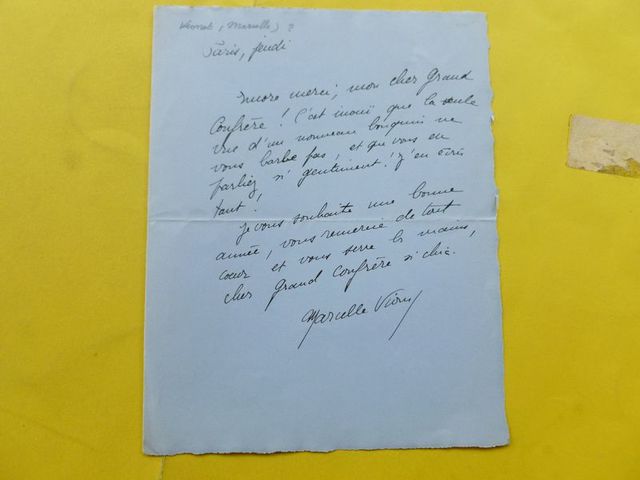 (Marcelle) ?
Paris, jeudi
Encore merci, mon cher Grand
Confrère ! C'est inouï que la seule
vue d'un nouveau bouquin ne
vous barbe pas, et que vous en
parliez si gentiment ! J'en écris
tant !
Je vous souhaite une bonne
année, vous remercie de tout
cœur et vous serre les mains,
cher Grand Confrère si chic.
Marcelle Vioux